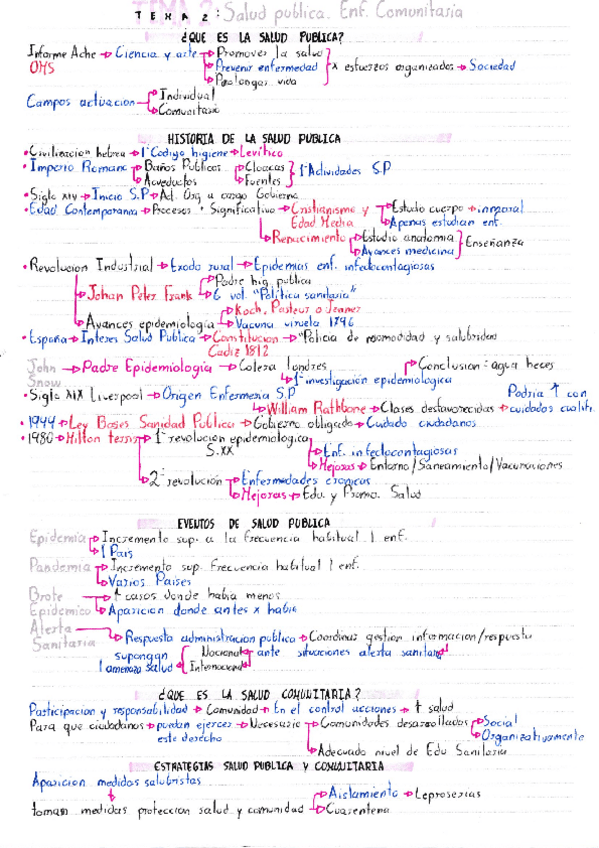 TEMA 2: Salud publica. Enf. Comunitaria
¿QUE ES LA SALUD PUBLICA?
Informe Ache → Ciencia y arte → Promover la salud
OMS → Prevenir enfermedad } x esfuerzos organizados → Sociedad
→ Prolongar vida
Campos actuación → Individual
→ Comunitario
HISTORIA DE LA SALUD PUBLICA
• Civilizacion hebrea → 1º Codigo higiene → Levitico
• Imperio Romano → Baños Publicos → Cloacas } 1º Actividades S.P
→ Acueductos → Fuentes
• Siglo XIV → Inicio S.P → Ad. Org a cargo Gobierno
• Edad Contemporanea → Procesos + Significativo → Cristianismo y Edad Media → Estudio cuerpo → inmoral
→ Apenas estudian enf.
→ Renacimiento → Estudio anatomia } Enseñanza
→ Avances medicina
• Revolucion Industrial → Exodo rural → Epidemias enf. infectocontagiosas
→ Johan Peter Frank → Padre hig. publica
→ 6 vol. "Politica sanitaria"
→ Avances epidemiologia → Koch, Pasteur o Jenner
→ Vacuna viruela 1796
• España → Interes Salud Publica → Constitucion Cadiz 1812 → "Policia de comodidad y salubridad
John Snow → Padre Epidemiologia → Colera londres → Conclusion: agua heces
→ 1º investigación epidemiologica
• Siglo XIX Liverpool → Origen Enfermeria S.P
→ William Rathbone → Clases desfavorecidas → Podria ↑ con cuidados cualif.
• 1944 → Ley Bases Sanidad Publica → Gobierno obligado → Cuidado ciudadanos
• 1980 → Hilton terris → 1º revolucion epidemiologica S.XX
→ Enf. infectocontagiosas
→ Mejoras → Entorno/Saneamiento/Vacunaciones
→ 2º revolución → Enfermedades cronicas
→ Mejoras → Edu. y Promo. Salud
EVENTOS DE SALUD PUBLICA
Epidemia → Incremento sup. a la frecuencia habitual 1 enf.
→ 1 Pais
Pandemia → Incremento sup. frecuencia habitual 1 enf.
→ Varios Paises
Brote Epidemico → ↑ casos donde habia menos
→ Aparicion donde antes x habia
Alerta Sanitaria → Respuesta administracion publica → Coordinar gestion informacion/respuesta
supongan 1 amenaza salud { Nacional Internacional } ante situaciones alerta sanitaria
¿QUE ES LA SALUD COMUNITARIA?
Participacion y responsabilidad → Comunidad → En el control acciones → ↑ salud
Para que ciudadanos → puedan ejercer este derecho → Necesario → Comunidades desarrolladas → Social
→ Organizativamente
→ Adecuado nivel de Edu Sanitaria
ESTRATEGIAS SALUD PUBLICA Y COMUNITARIA
Aparicion medidas salubristas
↓
tomaron medidas proteccion salud y comunidad → Aislamiento → Leproserias
→ Cuarentena